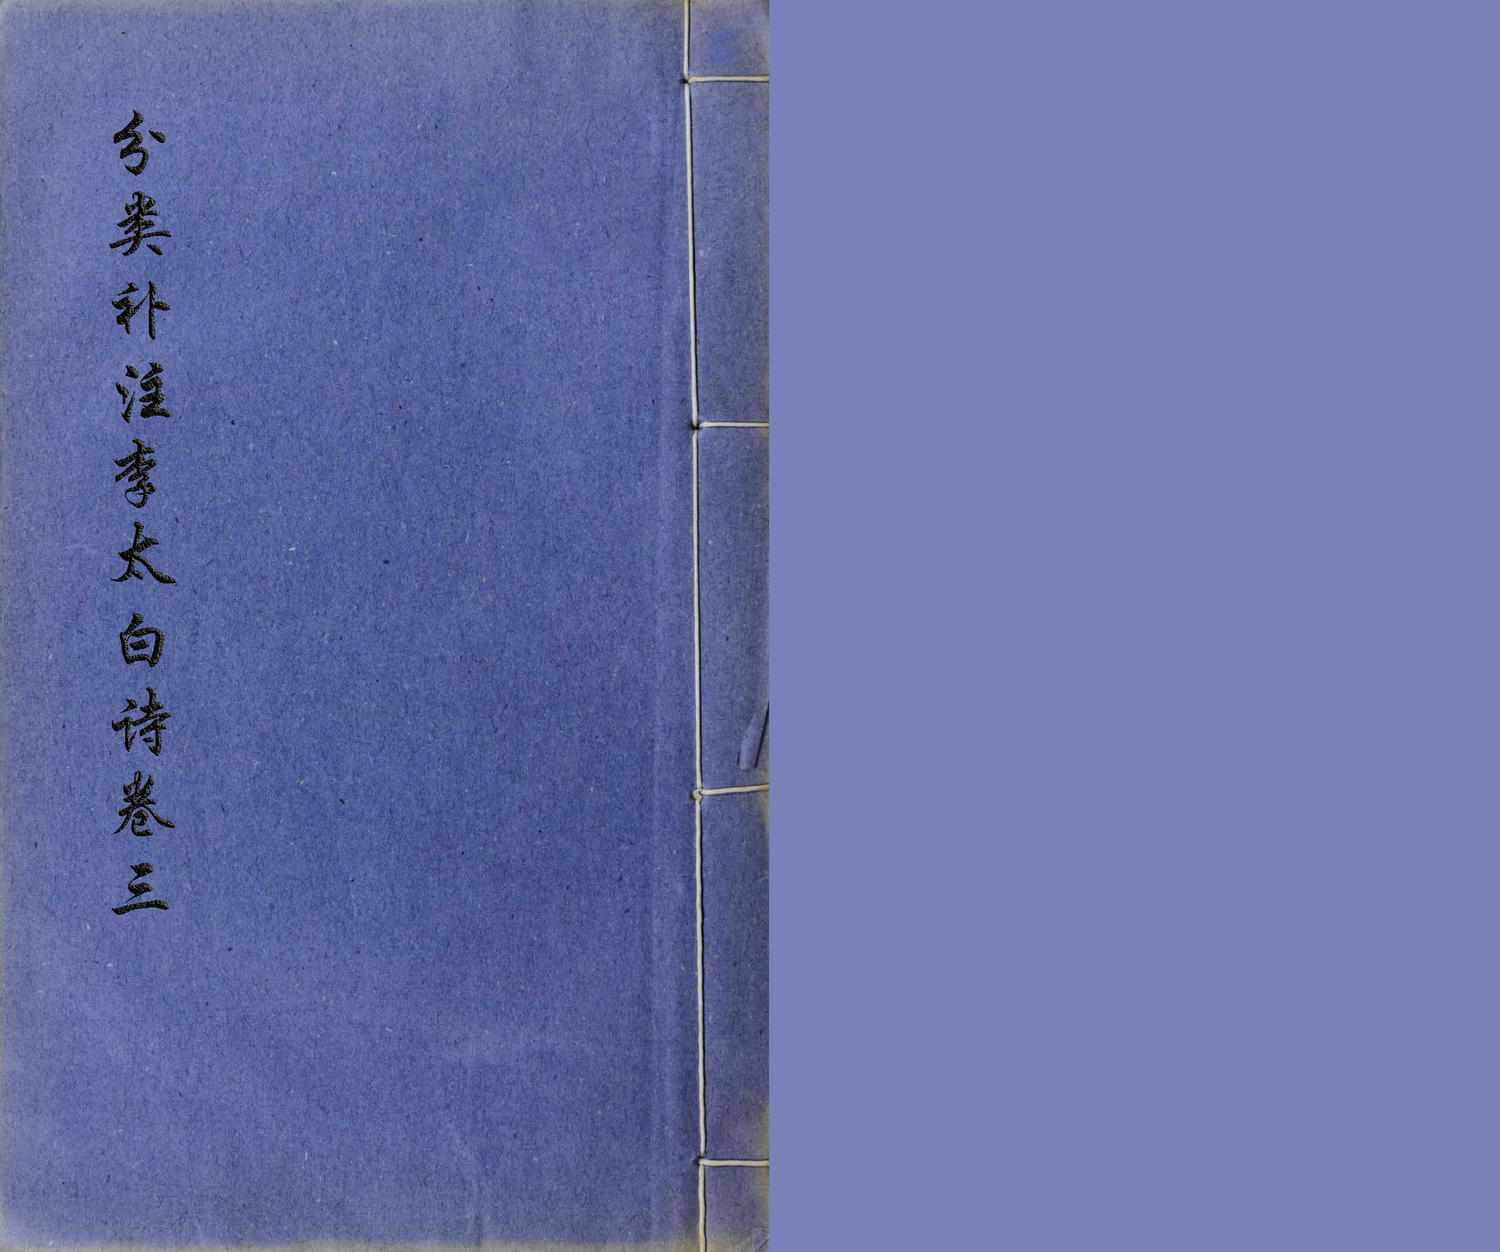 分类补注李太白诗卷三